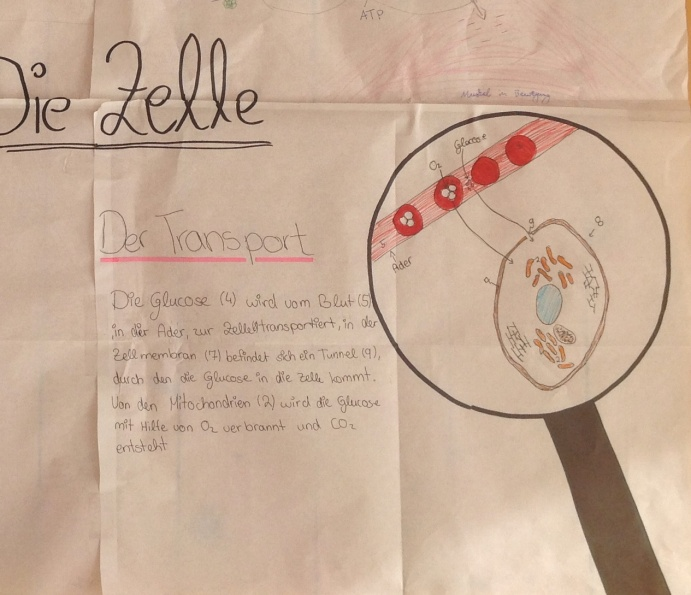 ATP
Die Zelle
Muskel in Bewegung
Glucose
O₂
Der Transport
5
Ader
9
8
Die Glucose (4) wird vom Blut (5)
in der Ader, zur Zelle transportiert, in der
Zellmembran (7) befindet sich ein Tunnel (9),
durch den die Glucose in die Zelle kommt.
Von den Mitochondrien (2) wird die Glucose
mit Hilfe von O₂ verbrannt und CO₂
entsteht